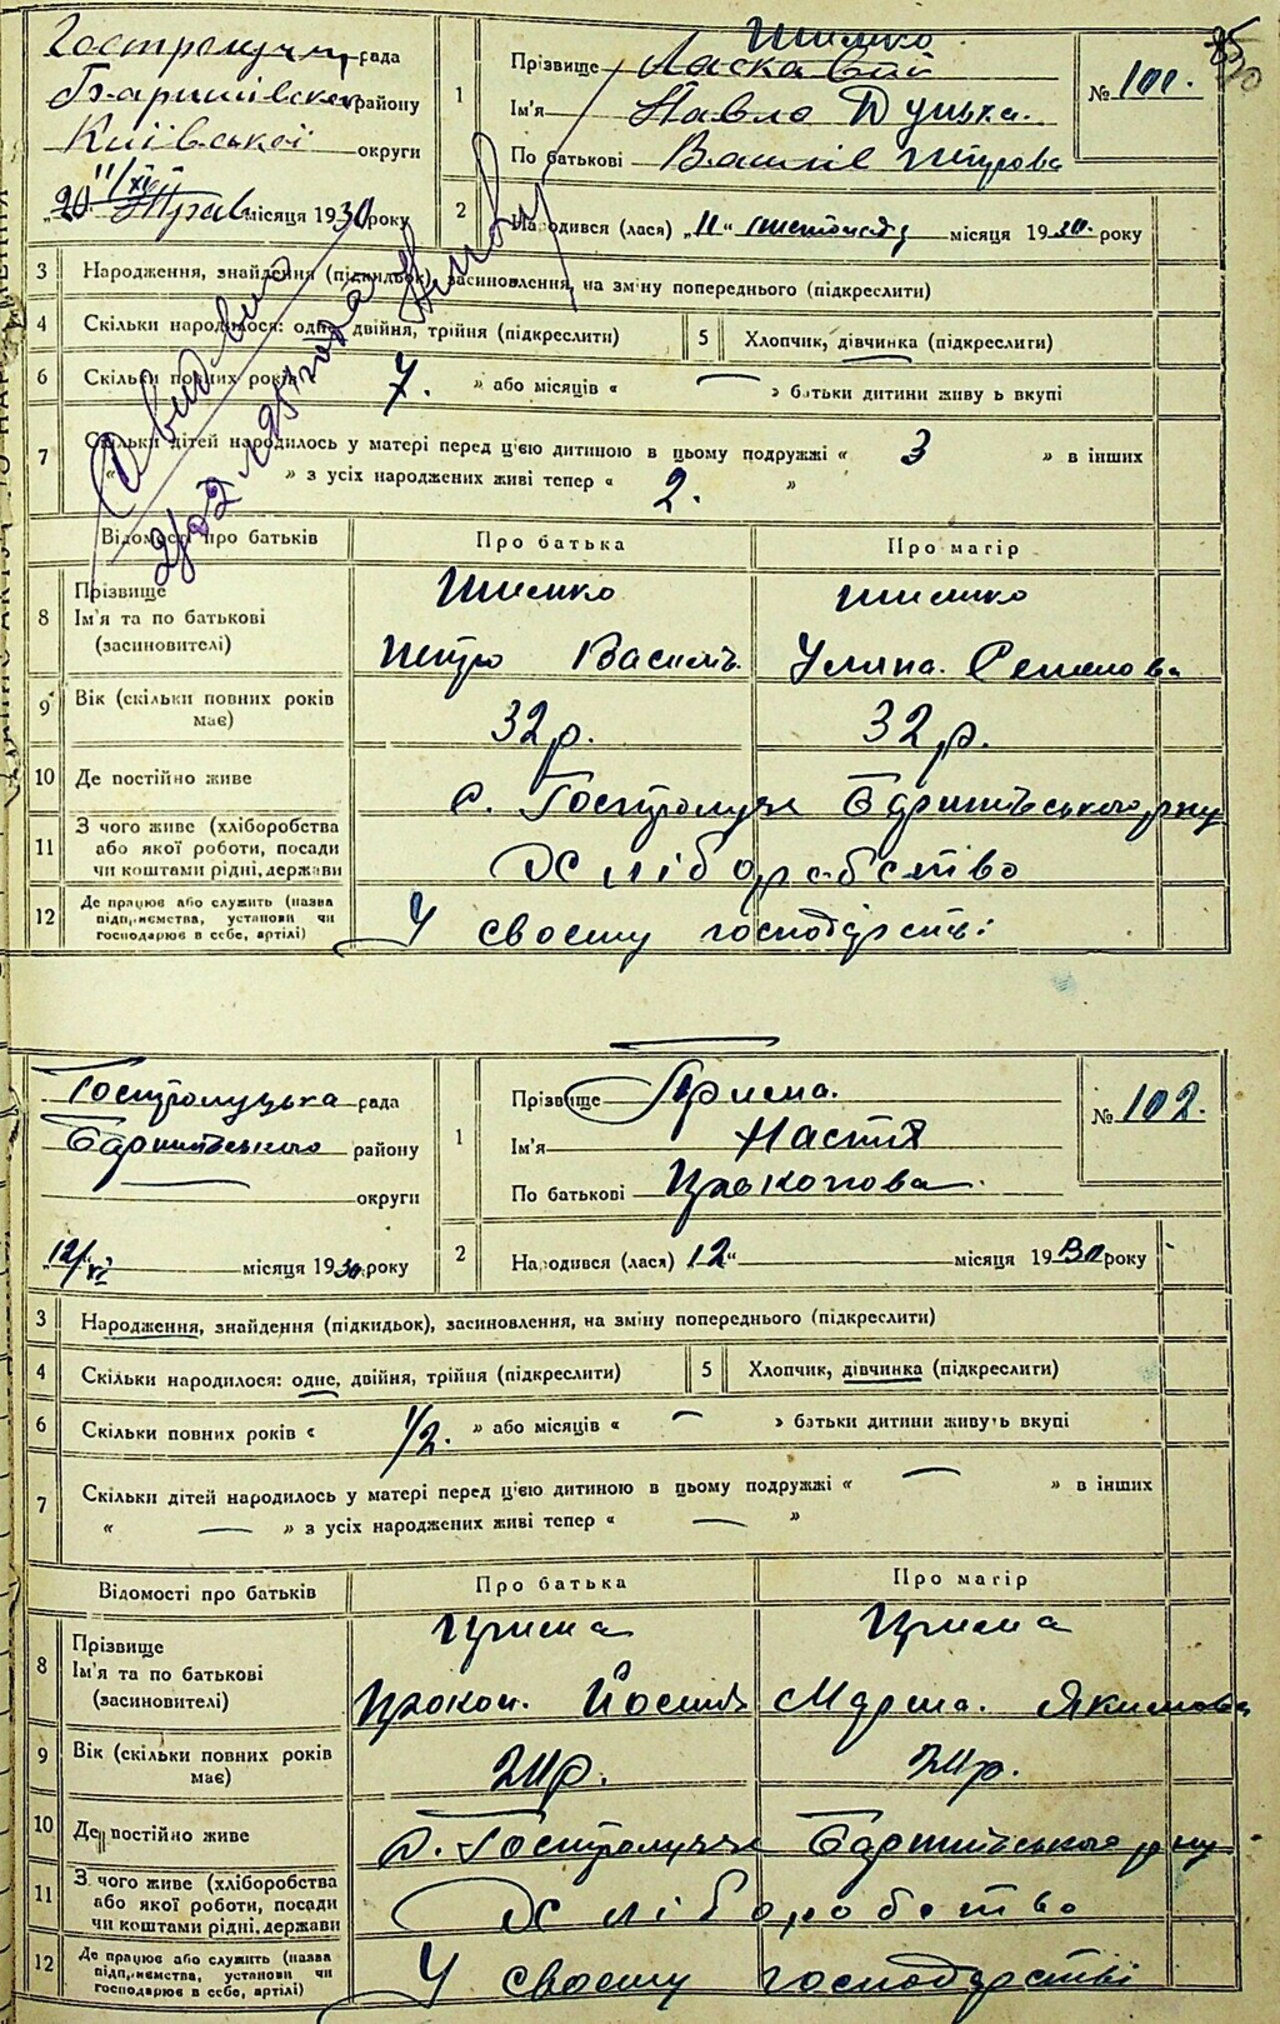 Гостролуцьк рада
Баришівськ району
Київської округи
11/XI
„20" Трав місяця 1930 року
1
Шишко
Прізвище Ласкавий
Ім'я Павло
По батькові Василів Петрова
№ 101.
2
Народився (лася) „11" листопаду місяця 1930 року
3 Народження, знайдення (підкидьок), засиновлення, на зміну попереднього (підкреслити)
4 Скільки народилося: одне, двійня, трійня (підкреслити)
5 Хлопчик, дівчинка (підкреслити)
6 Скільки повних років 7. » або місяців « — » батьки дитини живуть вкупі
7 Скільки дітей народилось у матері перед цією дитиною в цьому подружжі « 3 » в інших
« » з усіх народжених живі тепер « 2. »
Відомості про батьків Про батька Про матір
8 Прізвище
Ім'я та по батькові
(засиновителі)
Шишко Шишко
Петро Василів. Уляна. Семенова
9 Вік (скільки повних років
має)
32 р. 32 р.
10 Де постійно живе
с. Гостролуччя Баришівського р-ну
11 З чого живе (хліборобства
або якої роботи, посади
чи коштами рідні, держави
Хліборобство
12 Де працює або служить (назва
підприємства, установи чи
господарює в себе, артілі)
У своєму господарстві
Гостролуцька рада
Баришівського району
округи
„12/XI місяця 1930 року
1
Прізвище Прима.
Ім'я Настя
По батькові Прокопова.
№ 102.
2
Народився (лася) „12" місяця 1930 року
3 Народження, знайдення (підкидьок), засиновлення, на зміну попереднього (підкреслити)
4 Скільки народилося: одне, двійня, трійня (підкреслити)
5 Хлопчик, дівчинка (підкреслити)
6 Скільки повних років « 1/2. » або місяців « — » батьки дитини живуть вкупі
7 Скільки дітей народилось у матері перед цією дитиною в цьому подружжі « — » в інших
« — » з усіх народжених живі тепер « — »
Відомості про батьків Про батька Про матір
8 Прізвище
Ім'я та по батькові
(засиновителі)
Прима Прима
Прокоп. Йосипів Якимова
9 Вік (скільки повних років
має)
10 Де постійно живе
с. Гостролуччя Баришівського р-ну
11 З чого живе (хліборобства
або якої роботи, посади
чи коштами рідні, держави
Хліборобство
12 Де працює або служить (назва
підприємства, установи чи
господарює в себе, артілі)
У своєму господарстві